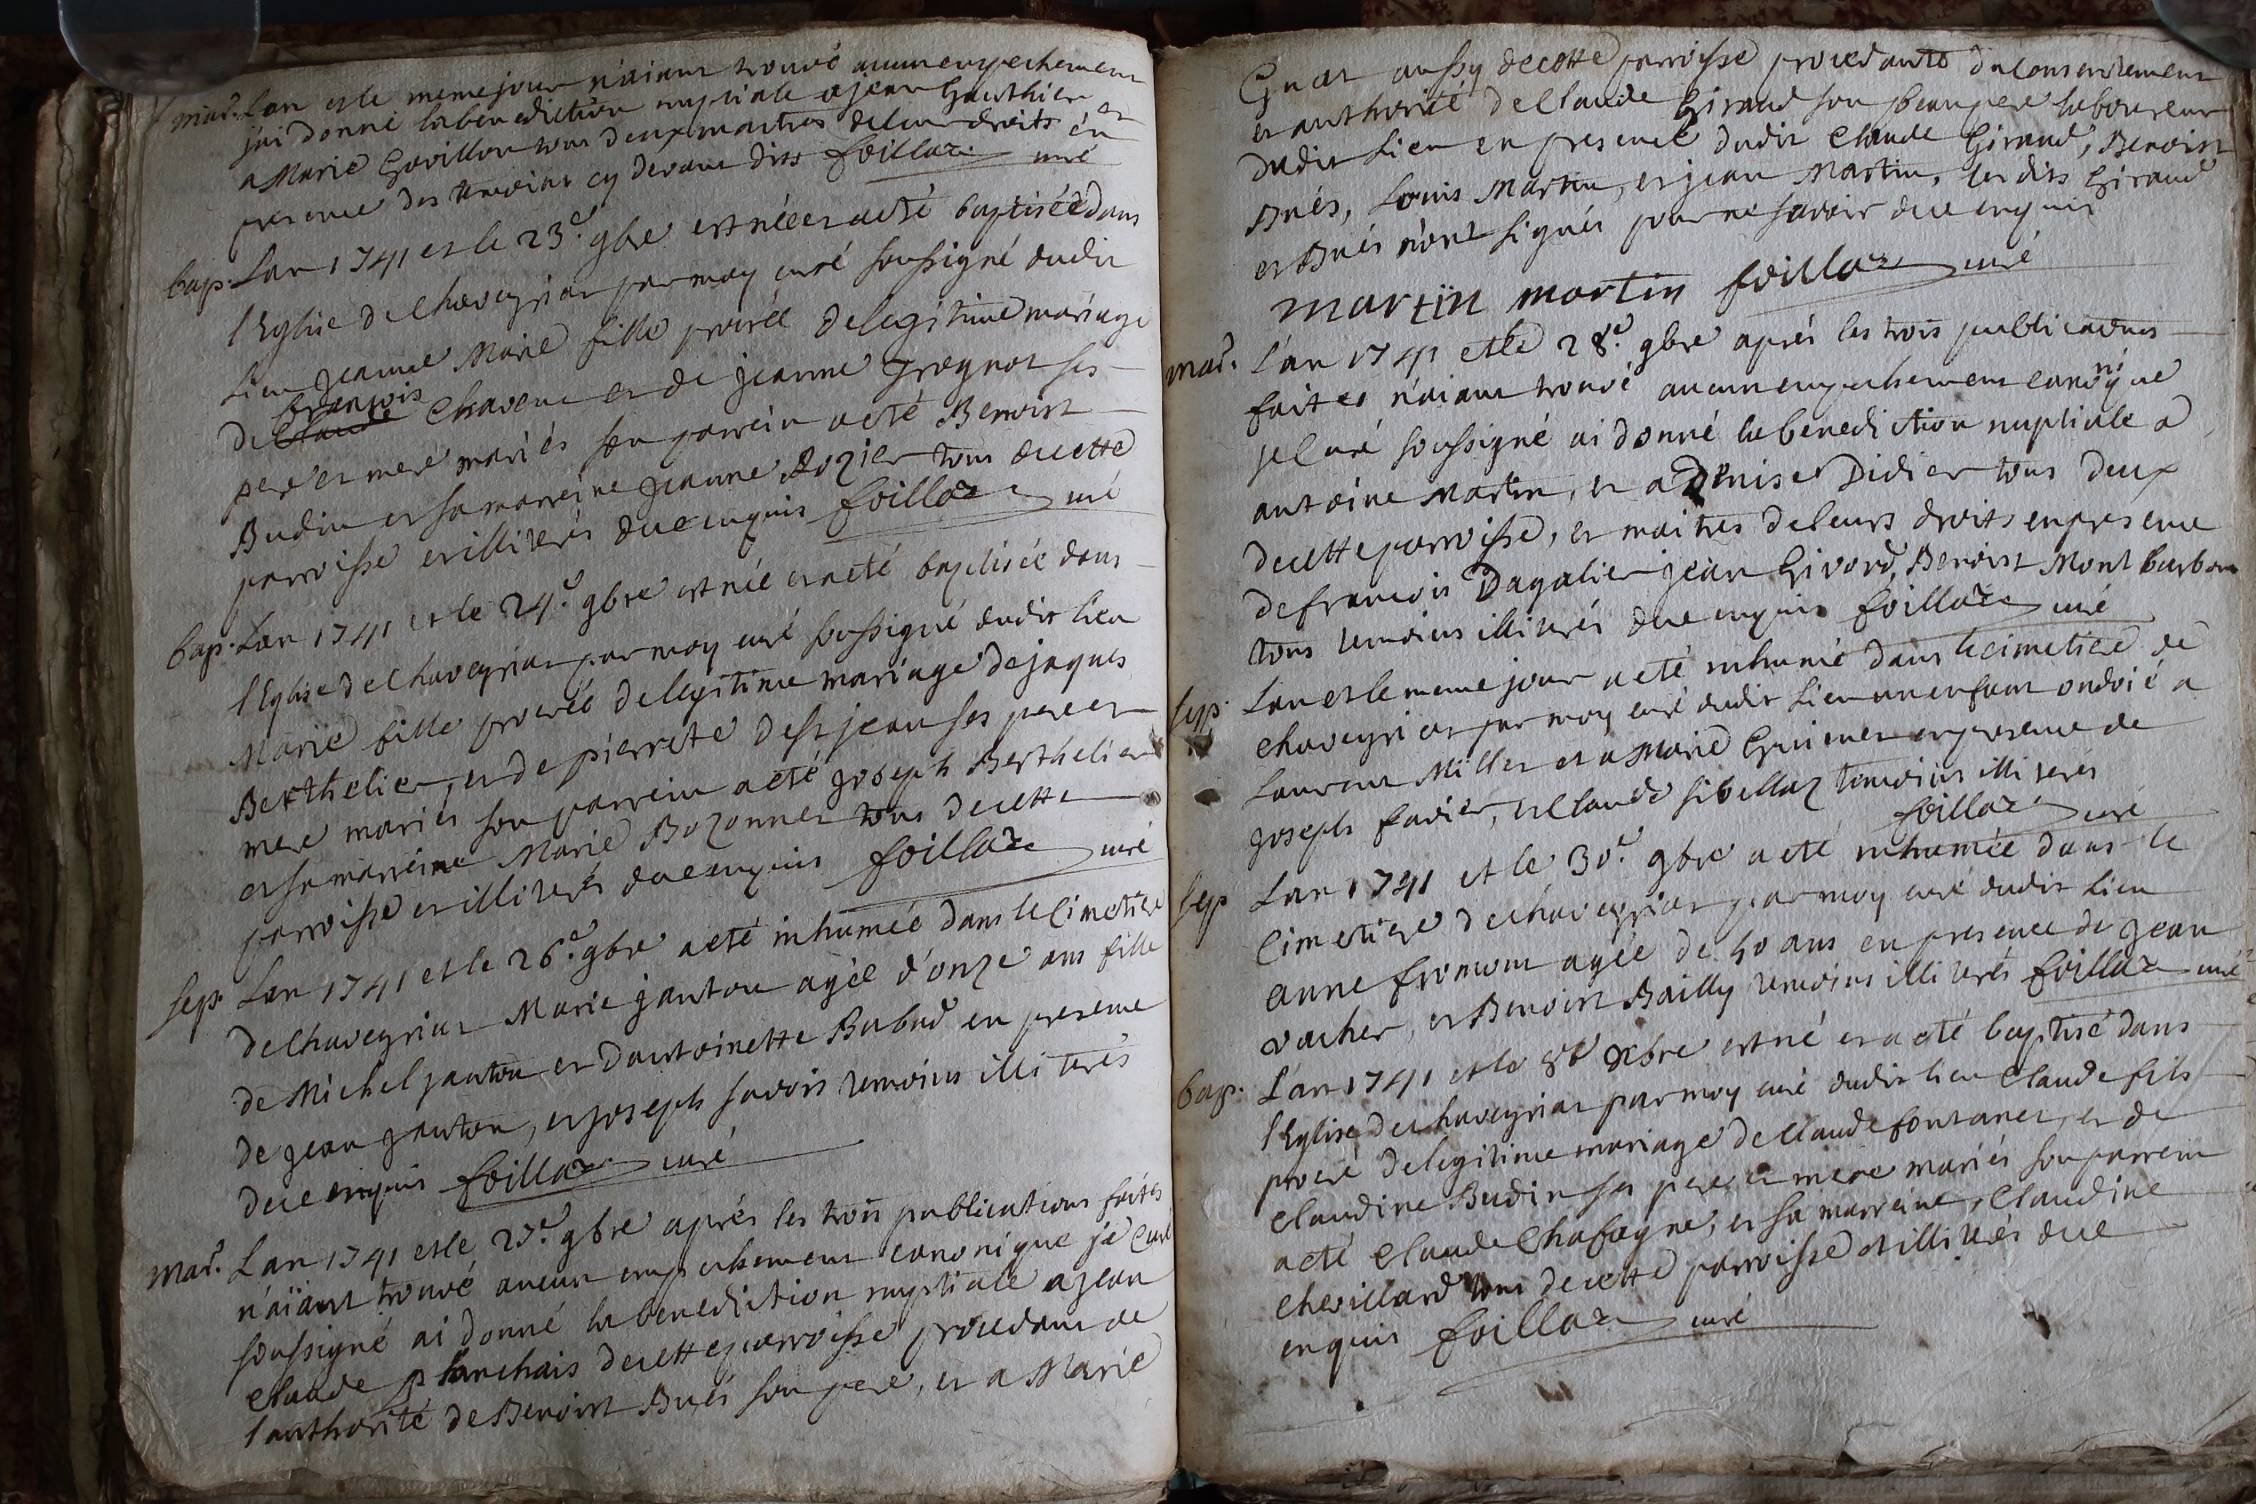 mar. Lan et le meme jour n'aiant trouvé aucun empechement
j'ai donné la benediction nuptiale a jean Gauthier et
a Marie Govillon tous deux maitres de leur droits en
presence des temoins cy devant dits foillaz curé
bap. Lan 1741 et le 23e. 9bre est née et a eté baptisée dans
l'Eglise de Chaveyriat par moy curé soussigné dudit
Lieu Jeanne Marie fille procrée de legitime mariage
françois
de Claude Chavent et de jeanne Grognot ses
pere et mere mariés son parrein a eté Benoist
Budin et sa marreine jeanne Rozier tous de cette
parroisse et illiterés de ce enquis foillaz curé
bap. Lan 1741 et le 24e. 9bre est née et a eté baptisée dans
l'Eglise de Chaveyriat par moy curé soussigné dudit lieu
Marie fille procrée de legitime mariage de jaques
Berthelier, et de pierrete de st jean ses pere et
mere mariés son parrein a eté joseph Berthelier
et sa marreine Marie Bozonnet tous de cette
parroisse et illiterés de ce enquis foillaz curé
sep. Lan 1741 et le 26e. 9bre a eté inhumée dans le Cimetiere
de Chaveyriat Marie janton agée d'onze ans fille
de Michel janton et d'antoinette Bubud en presence
de jean janton, et joseph savois temoins illiterés
de ce enquis foillaz curé
mar. Lan 1741 et le 27e. 9bre aprés les trois publications faites
n'aïant trouvé aucun empechement canonique je Curé
soussigné ai donné la benediction nuptiale a jean
Claude planchais de cette parroisse procedant de
l'authorité de Benoist Bués son pere, et a Marie
aussy de cette parroisse procedante du consentement
et authorité de Claude Giraud son beau pere laboureur
dudit Lieu en presence dudit Claude Giraud, Benoist
Bués, Louis Martin, et jean Martin, les dits Giraud
et Bués n'ont signés pour ne savoir de ce enquis
martin martin foillaz curé
mar. L'an 1741 et le 28e. 9bre aprés les trois publications
ni
faites n'aiant trouvé aucun empechement canoque
je Curé soussigné ai donné la benediction nuptiale a
antoine Martin, et a Denise Didier tous deux
de cette parroisse, et maitres de leurs droits en presence
de francois Dagalier jean Givord, Benoist Mont barbon
tous temoins illiterés de ce enquis foillaz curé
sep. Lan et le meme jour a eté inhumé dans le cimetiere de
Chaveyriat par moy curé dudit Lieu un enfant ondoié a
Laurent Millet et a Marie Guinet en presence de
joseph favier, et Claude sibellaz temoins illiterés
foillaz curé
sep Lan 1741 et le 30e. 9bre a eté inhumée dans le
Cimetiere de Chaveyriat par moy curé dudit Lieu
anne fromont agée de 50 ans en presence de jean
vacher, et Benoist Bailly temoins illiterés foillaz curé
bap. L'an 1741 et le 8e xbre est né et a eté baptisé dans
l'Eglise de Chaveyriat par moy curé dudit lieu Claude fils
procré de legitime mariage de Claude fontanet, et de
Claudine Budin ses pere et mere mariés son parrein
a eté Claude Chafagne, et sa marreine, Claudine
Chevillard tous de cette parroisse et illiterés de ce
enquis foillaz curé